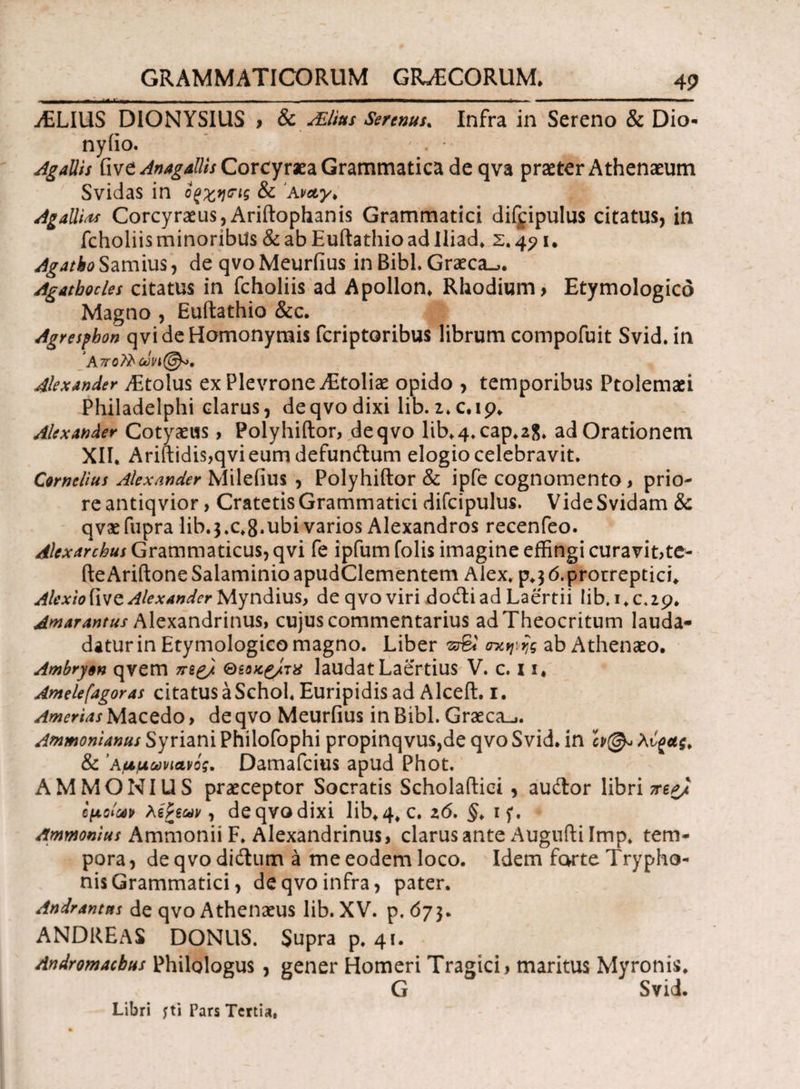 GRAMMATICORUM GRÆCORUM. 49
ÆLIUS DIONYSIUS , & Ælius Serenus. Infra in Sereno & Dio-
nyſio.
Agallis ſive Anagallis Corcyræa Grammatica de qva præter Athenæum
Svidas in ὀρχησις & Ἀναγ.
Agallias Corcyræus, Ariſtophanis Grammatici diſcipulus citatus, in
ſcholiis minoribus & ab Euſtathio ad Iliad. Σ. 491.
Agatho Samius, de qvo Meurſius in Bibl. Græca.
Agathocles citatus in ſcholiis ad Apollon. Rhodium, Etymologicò
Magno , Euſtathio &c.
Agresphon qvi de Homonymis ſcriptoribus librum compoſuit Svid. in
Ἀπολλώνιος.
Alexander Ætolus ex Plevrone Ætoliæ opido , temporibus Ptolemæi
Philadelphi clarus, de qvo dixi lib. 2. c. 19.
Alexander Cotyæus , Polyhiſtor, de qvo lib. 4. cap. 28. ad Orationem
XII. Ariſtidis, qvi eum defunctum elogio celebravit.
Cornelius Alexander Mileſius , Polyhiſtor & ipſe cognomento , prio-
re antiqvior , Cratetis Grammatici diſcipulus. Vide Svidam &
qvæ ſupra lib. 3. c. 8. ubi varios Alexandros recenſeo.
Alexarchus Grammaticus, qvi ſe ipſum ſolis imagine effingi curavit, te-
ſte Ariſtone Salaminio apud Clementem Alex. p. 36. protreptici.
Alexio ſive Alexander Myndius, de qvo viri docti ad Laërtii lib. 1. c. 29.
Amarantus Alexandrinus, cujus commentarius ad Theocritum lauda-
datur in Etymologico magno. Liber περὶ σκηνῆς ab Athenæo.
Ambryon qvem περὶ Θεοκρίτου laudat Laërtius V. c. 11.
Amelesagoras citatus à Schol. Euripidis ad Alceſt. 1.
Amerias Macedo , de qvo Meurſius in Bibl. Græca.
Ammonianus Syriani Philoſophi propinqvus, de qvo Svid. in ὄνος λύρας.
& Ἀμμωνιανός. Damaſcius apud Phot.
AMMONIUS præceptor Socratis Scholaſtici , auctor libri περὶ
ὁμοίων λέξεων , de qvo dixi lib. 4. c. 26. §. 15.
Ammonius Ammonii F. Alexandrinus, clarus ante Auguſti Imp. tem-
pora, de qvo dictum à me eodem loco. Idem forte Trypho-
nis Grammatici , de qvo infra, pater.
Andrantus de qvo Athenæus lib. XV. p. 673.
ANDREAS DONUS. Supra p. 41.
Andromachus Philologus , gener Homeri Tragici , maritus Myronis.
G Svid.
Libri 5ti Pars Tertia.